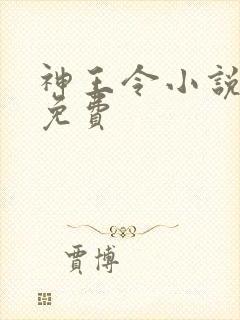 神王令小説
免費
賈博